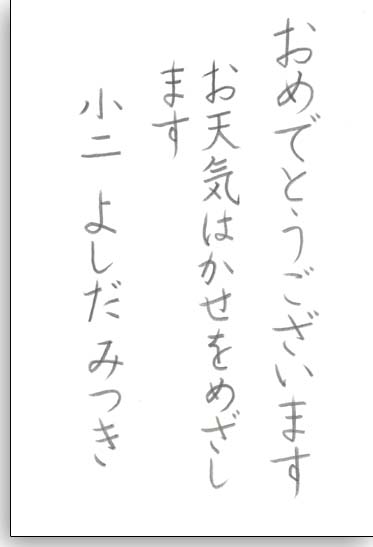 おめでとうございます
お天気はかせをめざし
ます
小二 よしだ みつき